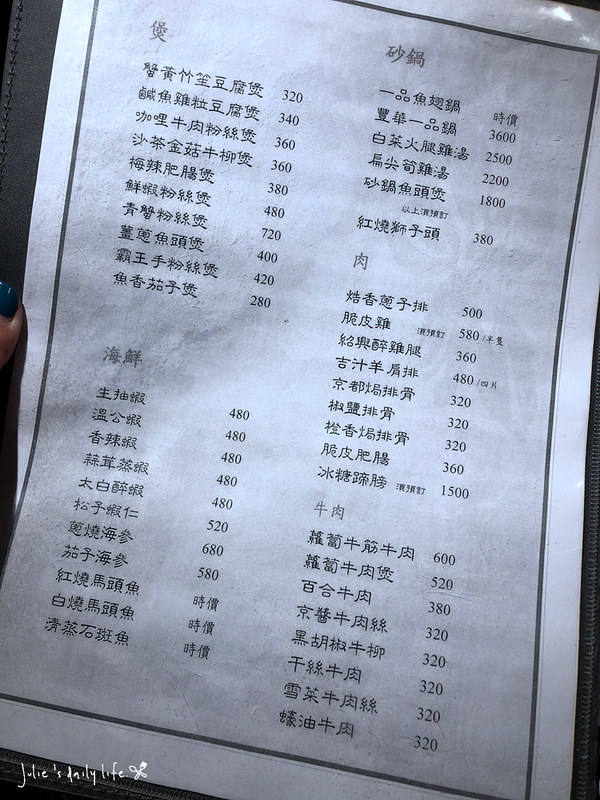 煲
蟹黃竹笙豆腐煲 320
鹹魚雞粒豆腐煲 340
咖哩牛肉粉絲煲 360
沙茶金菇牛柳煲 360
梅辣肥腸煲 380
鮮蝦粉絲煲 480
青蟹粉絲煲 720
薑蔥魚頭煲 400
霸王手粉絲煲 420
魚香茄子煲 280
海鮮
生抽蝦 480
溫公蝦 480
香辣蝦 480
蒜茸蒸蝦 480
太白醉蝦 480
松子蝦仁 520
蔥燒海參 680
茄子海參 580
紅燒馬頭魚 時價
白燒馬頭魚 時價
清蒸石斑魚 時價
砂鍋
一品魚翅鍋 時價
豐華一品鍋 3600
白菜火腿雞湯 2500
扁尖筍雞湯 2200
砂鍋魚頭煲 1800
以上須預訂
紅燒獅子頭 380
肉
焅香蔥子排 500
脆皮雞 須預訂 580 /半隻
紹興醉雞腿 360
吉汁羊肩排 480 /四片
京都焗排骨 320
椒鹽排骨 320
橙香焗排骨 320
脆皮肥腸 360
冰糖蹄膀 須預訂 1500
牛肉
蘿蔔牛筋牛肉 600
蘿蔔牛肉煲 520
百合牛肉 380
京醬牛肉絲 320
黑胡椒牛柳 320
干絲牛肉 320
雪菜牛肉絲 320
蠔油牛肉 320
Julie's daily life